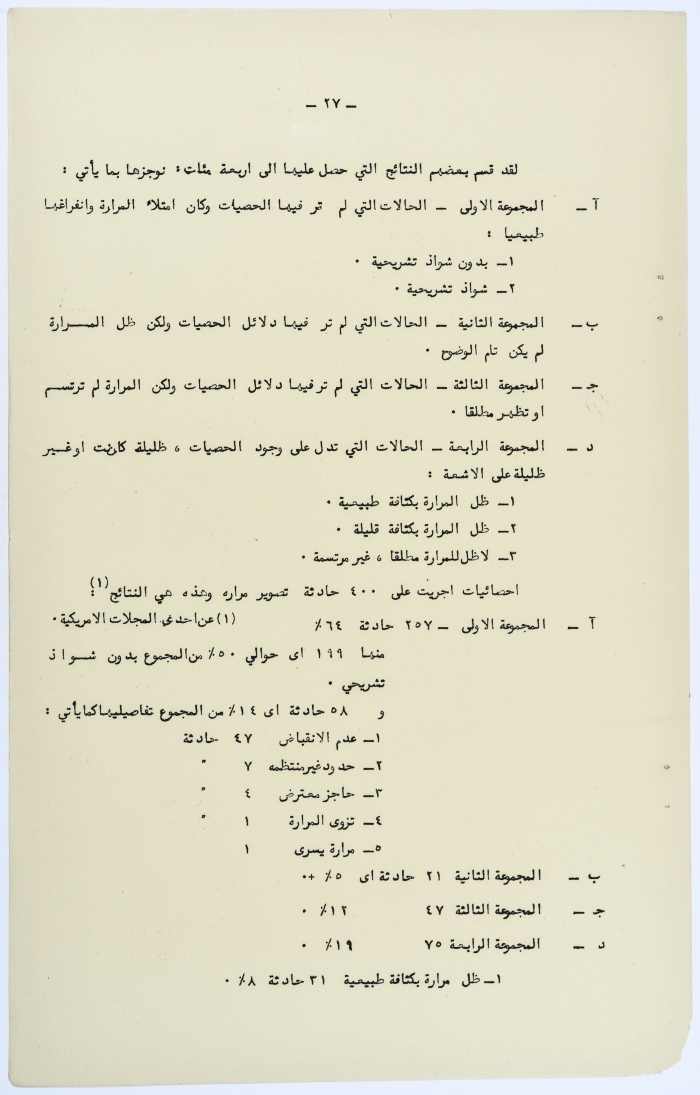 – ٢٧ –
لقد قسم بعضهم النتائج التي حصل عليها الى اربعة مئات: نوجزها بما يأتي :
آ – المجموعة الاولى – الحالات التي لم تر فيها الحصيات وكان امتلاء المرارة وانفراغها
طبيعيا :
١– بدون شواذ تشريحية ٠
٢– شواذ تشريحية ٠
ب– المجموعة الثانية – الحالات التي لم تر فيها دلائل الحصيات ولكن ظل المــرارة
لم يكن تام الوضوح ٠
جـ– المجموعة الثالثة – الحالات التي لم تر فيها دلائل الحصيات ولكن المرارة لم ترتسم
او تظهر مطلقا ٠
د – المجموعة الرابعة – الحالات التي تدل على وجود الحصيات ، ظليلة كانت او غير
ظليلة على الاشعة :
١– ظل المرارة بكثافة طبيعية ٠
٢– ظل المرارة بكثافة قليلة ٠
٣– لاظل للمرارة مطلقا ، غير مرتسمة ٠
احصائيات اجريت على ٤٠٠ حادثة تصوير مراره وهذه هي النتائج(١):
(١) عن احدى المجلات الامريكية ٠
آ – المجموعة الاولى – ٢٥٧ حادثة ٦٤٪
منها ١٩٩ اى حوالي ٥٠٪ من المجموع بدون شــواذ
تشريحي ٠
و ٥٨ حادثة اى ١٤٪ من المجموع تفاصيلها كما يأتي :
١– عدم الانقباض ٤٧ حادثة
٢– حدود غير منتظمه ٧ "
٣– حاجز معترض ٤ "
٤– تزوى المرارة ١ "
٥– مرارة يسرى ١
ب – المجموعة الثانية ٢١ حادثة اى ٥٪ +٠
جـ – المجموعة الثالثة ٤٧ ١٢٪ ٠
د – المجموعة الرابعة ٧٥ ١٩٪ ٠
١– ظل مرارة بكثافة طبيعية ٣١ حادثة ٨٪ ٠